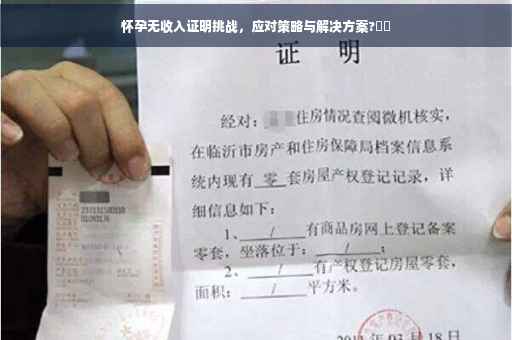 怀孕无收入证明挑战，应对策略与解决方案?
证 明
经对：住房情况查阅微机核实，
在临沂市房产和住房保障局档案信息系
统内现有 零 套房屋产权登记记录，详
细信息如下：
1、 / 有商品房网上登记备案
零套，坐落位于： / ；
2、 / 有产权登记房屋零套，
面积： / 平方米。
03月18日